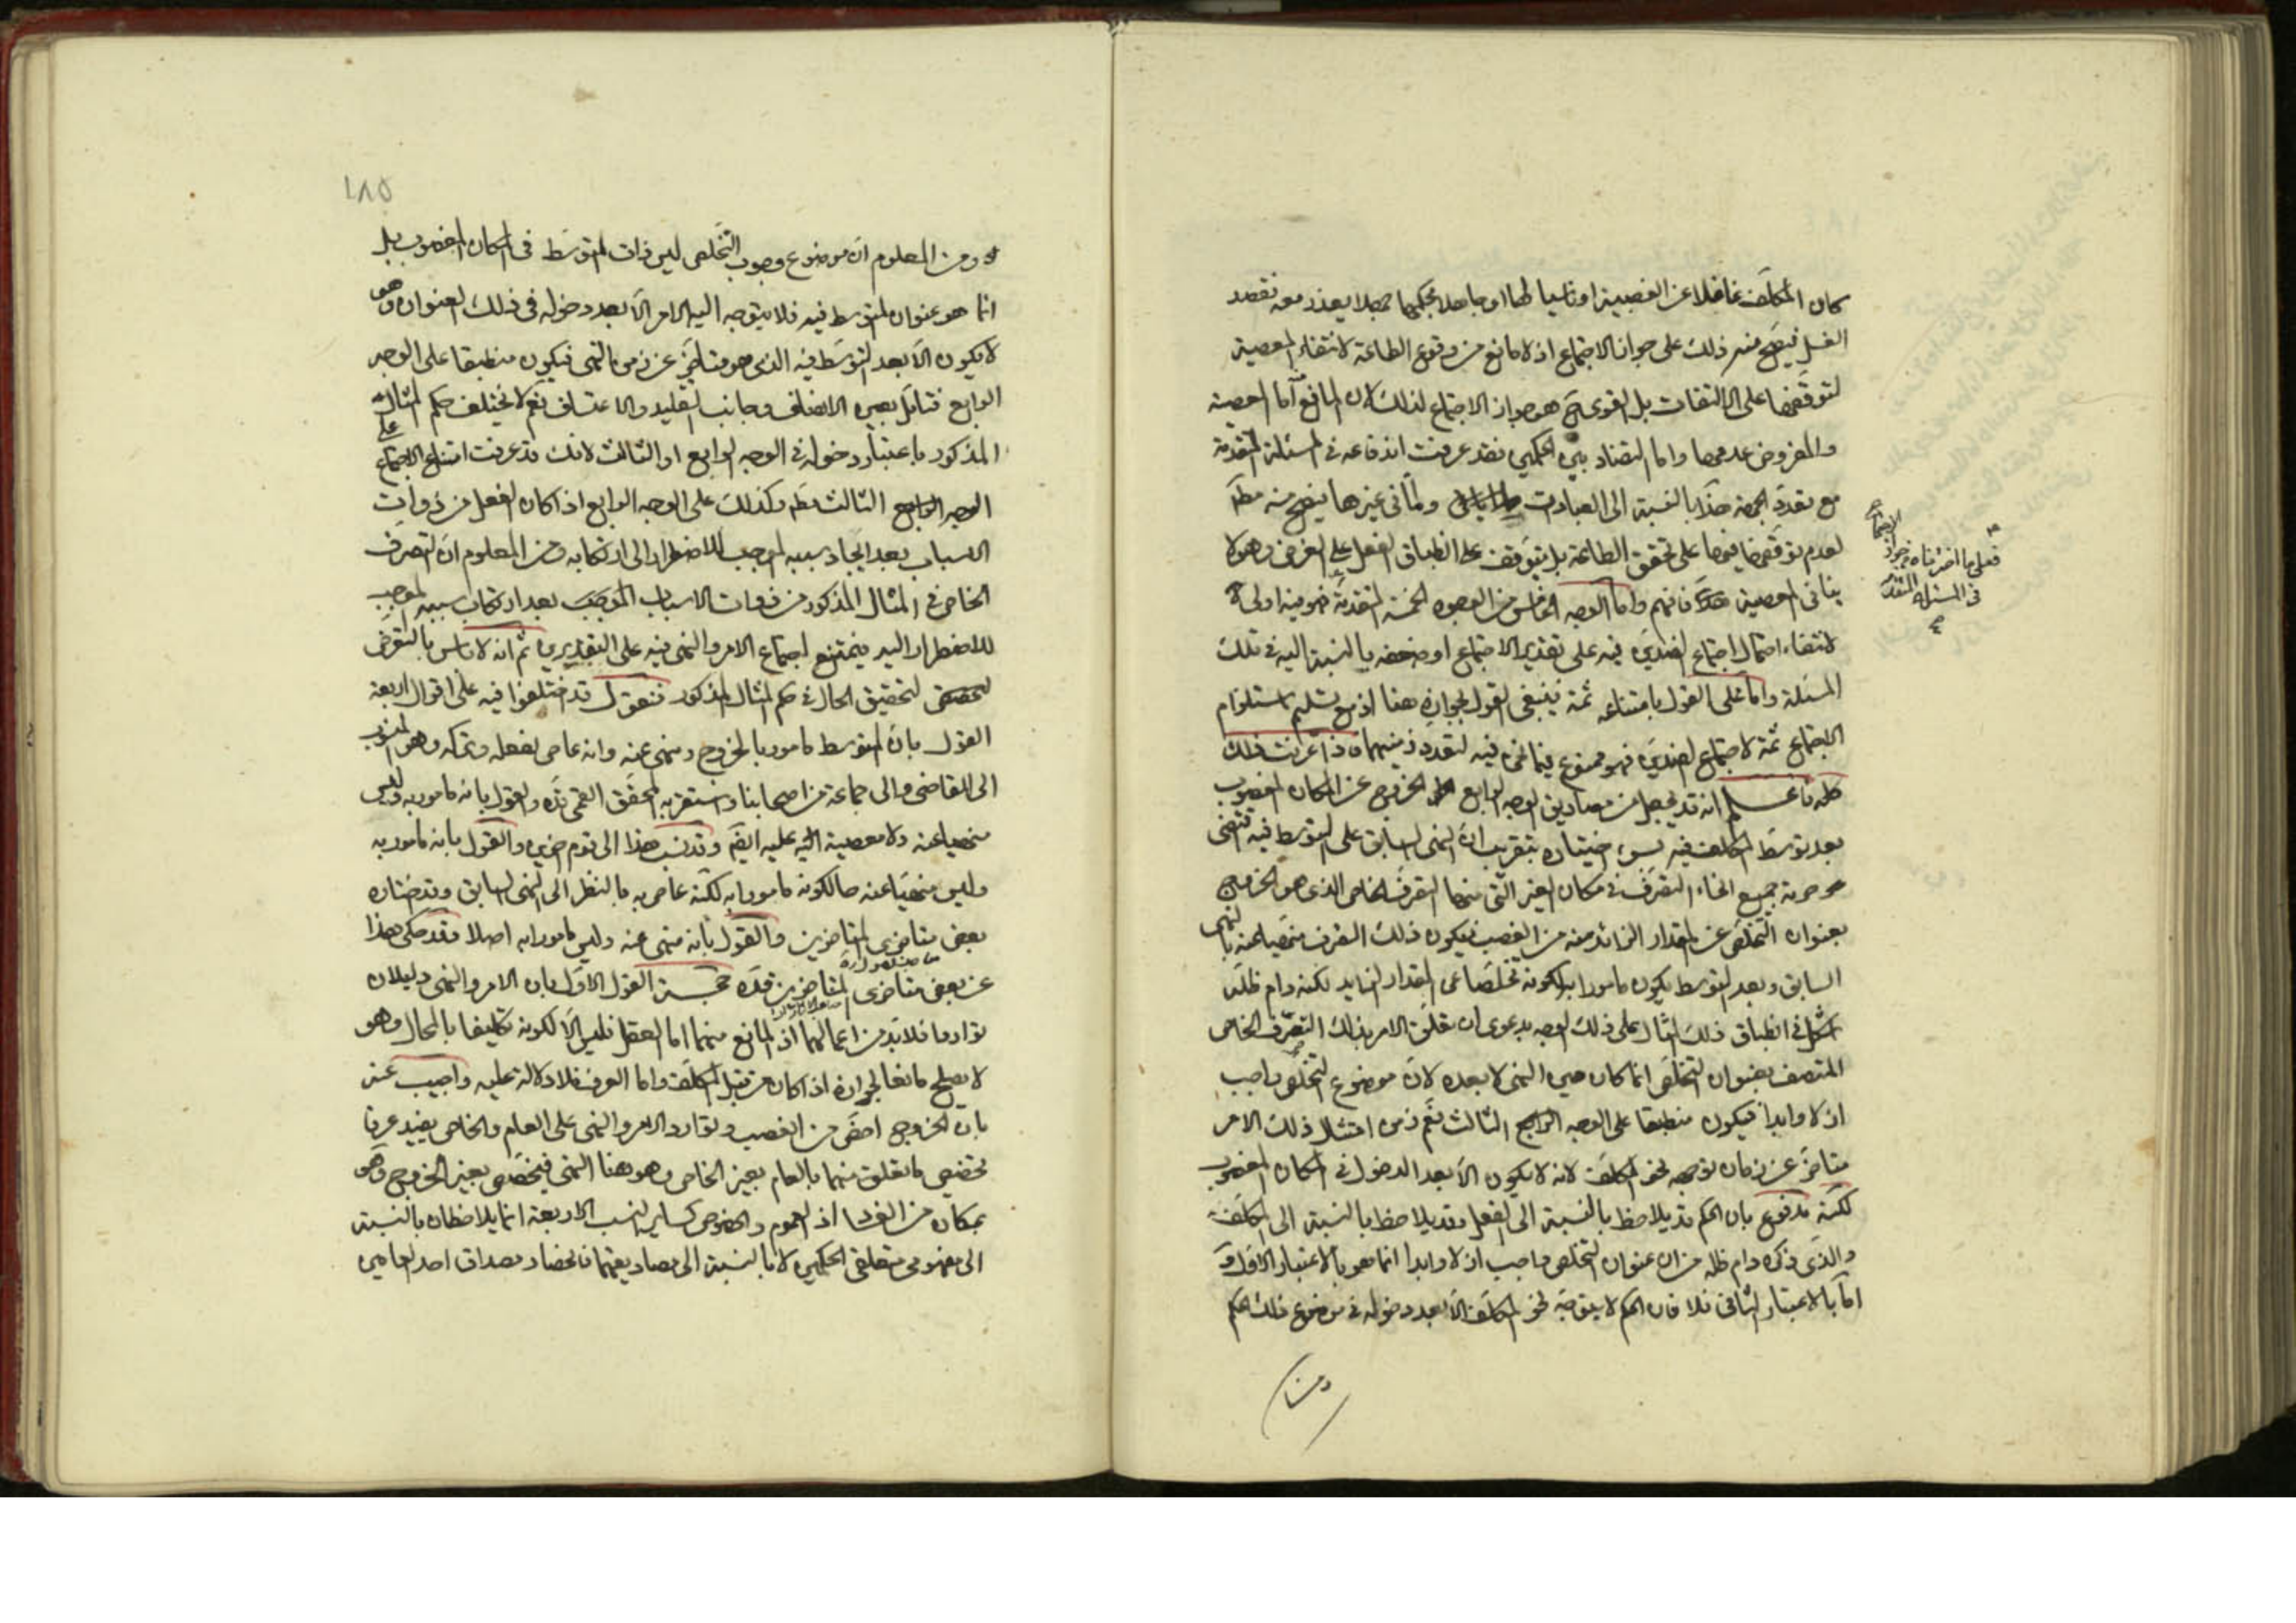 كان المكلف غافلا عن الغصبية او ناسيا لها او جاهلا بحكمها جهلا يعذر معه فقصد
الغسل فيصح منه ذلك على جواز الاجتماع اذ لا مانع من وقوع الطاعة لانتفاء المعصية
لتوقفها على الالتفات بل القوى ح هو جواز الاجتماع لذلك لان المانع اما المعصية
والمفروض عدمها واما التضاد بين الحكمين فقد عرفت اندفاعه في المسئلة المتقدمة
مع تعدد الجهة هذا بالنسبة الى العبادات واما في غيرها فيصح منه مطه
لعدم توقفها فيها على تحقق الطاعة بل يتوقف على انطباق الفعل على الغرض وهو لا
ينافى المعصية فافهم واما الوجه الخامس من الوجوه الخمسة المتقدمة فهو مبنى
لانتفاء احتمال اجتماع الضدين فيه على تقدير الاجتماع او ضعفه بالنسبة اليه في تلك
المسئلة واما على القول بامتناعه ثمة فينبغى القول بجوازه هنا اذ مع تسليم استلزام
الاجتماع ثمة لاجتماع الضدين فهو ممنوع فيما نحن فيه لتعدد زمنيهما فاذا عرفت ذلك
كله فاعلم انه قد يجعل من مصاديق الوجه الرابع الخروج عن المكان المغصوب
بعد توسط المكلف فيه بسوء اختياره بتقريب ان النهى السابق على التوسط فيه تقتضى
حرمة جميع انحاء التصرف في مكان الغير التى منها التصرف الخاص الذى هو الخروج
بعنوان التخلص عن المقدار الزائد منه من الغصب فيكون ذلك التصرف منهيا عنه بالنهى
السابق وبعد التوسط يكون مامورا به لكونه تخلصا عن المقدار الزايد لكنه دام ظله
اشكل في انطباق ذلك المثال على ذلك الوجه بدعوى ان تعلق الامر بذلك التصرف الخاص
المتصف بعنوان التخلص انما كان حين النهى لا بعده لان موضوع التخلص واجب
ازلا وابدا فيكون منطبقا على الوجه الثالث نعم زمن امتثال ذلك الامر
متاخر عن زمان توجهه نحو المكلف لانه لا يكون الا بعد الدخول في المكان المغصوب
لكنه مدفوع بان الحكم قد يلاحظ بالنسبة الى الفعل وقد يلاحظ بالنسبة الى المكلف
والذى ذكره دام ظله من ان عنوان التخلص واجب ازلا وابدا انما هو بالاعتبار الاول و
اما بالاعتبار الثانى فلا فان الحكم لا يتوجه نحو المكلف الا بعد دخوله في موضوع ذلك الحكم
ومن
فعلى ما اخترناه من جواز
الاجتماع
في المسئلة المتقدمة
١٨٥
ومن المعلوم ان موضوع وجوب التخلص ليس ذات المتوسط في المكان المغصوب بل
انما هو عنوان المتوسط فيه فلا يتوجه اليه الامر الا بعد دخوله في ذلك العنوان وهو
لا يكون الا بعد التوسط فيه الذى هو متاخر عن زمن النهى فيكون منطبقا على الوجه
الرابع فتامل بعين الانصاف وجانب التقليد والاعتساف نعم لا يختلف حكم المثال
المذكور باعتبار دخوله في الوجه الرابع او الثالث لانك قد عرفت امتناع الاجتماع على
الوجه الثالث مطه وكذلك على الوجه الرابع اذا كان الفعل من ذوات
الاسباب بعد ايجاد سببه الموجب للاضطرار الى ارتكابه ومن المعلوم ان التصرف
الخاص في المثال المذكور من ذوات الاسباب الموجبة بعد ارتكاب سببه الموجب
للاضطرار اليه فيمتنع اجتماع الامر والنهى فيه على التقديرين ثم انه لا باس بالتعرض
لتحقيق الحال في حكم المثال المذكور فنقول قد اختلفوا فيه على اقوال اربعة
القول بان المتوسط مامور بالخروج ومنهى عنه وانه عاص بفعله وتركه وهو المنسوب
الى القاضى والى جماعة من اصحابنا واستقر به المحقق القمى قده والقول بانه مامور به وليس
منهيا عنه ولا معصية عليه ايضا وقد نسب هذا الى قوم اخرين والقول بانه مامور به
وليس منهيا عنه حال كونه مامورا به لكنه عاص به بالنظر الى النهى السابق وقد اختاره
بعض متاخرى المتاخرين والقول بانه منهى عنه وليس مامورا به اصلا وقد حكى هذا
عن بعض متاخرى المتاخرين قده حجة القول الاول بان الامر والنهى دليلان
تواردا فلا بد من اعمالهما اذ المانع منهما اما العقل فليس الا لكونه تكليفا بالمحال وهو
لا يصلح مانعا لجوازه اذا كان من قبل المكلف واما العرف فلا دلالة عليه واجيب عنه
بان الخروج اخص من الغصب وتوارد الامر والنهى على العام والخاص يفيد عرفا
تخصيص ما تعلق منهما بالعام بغير الخاص وهو هنا النهى فيختص بغير الخروج وهو
بمكان من الفساد اذ العموم والخصوص كسائر النسب الاربعة انما يلاحظان بالنسبة
الى مفهومى متعلقى الحكمين لا بالنسبة الى مصاديقهما فانحصار مصداق احد العامين